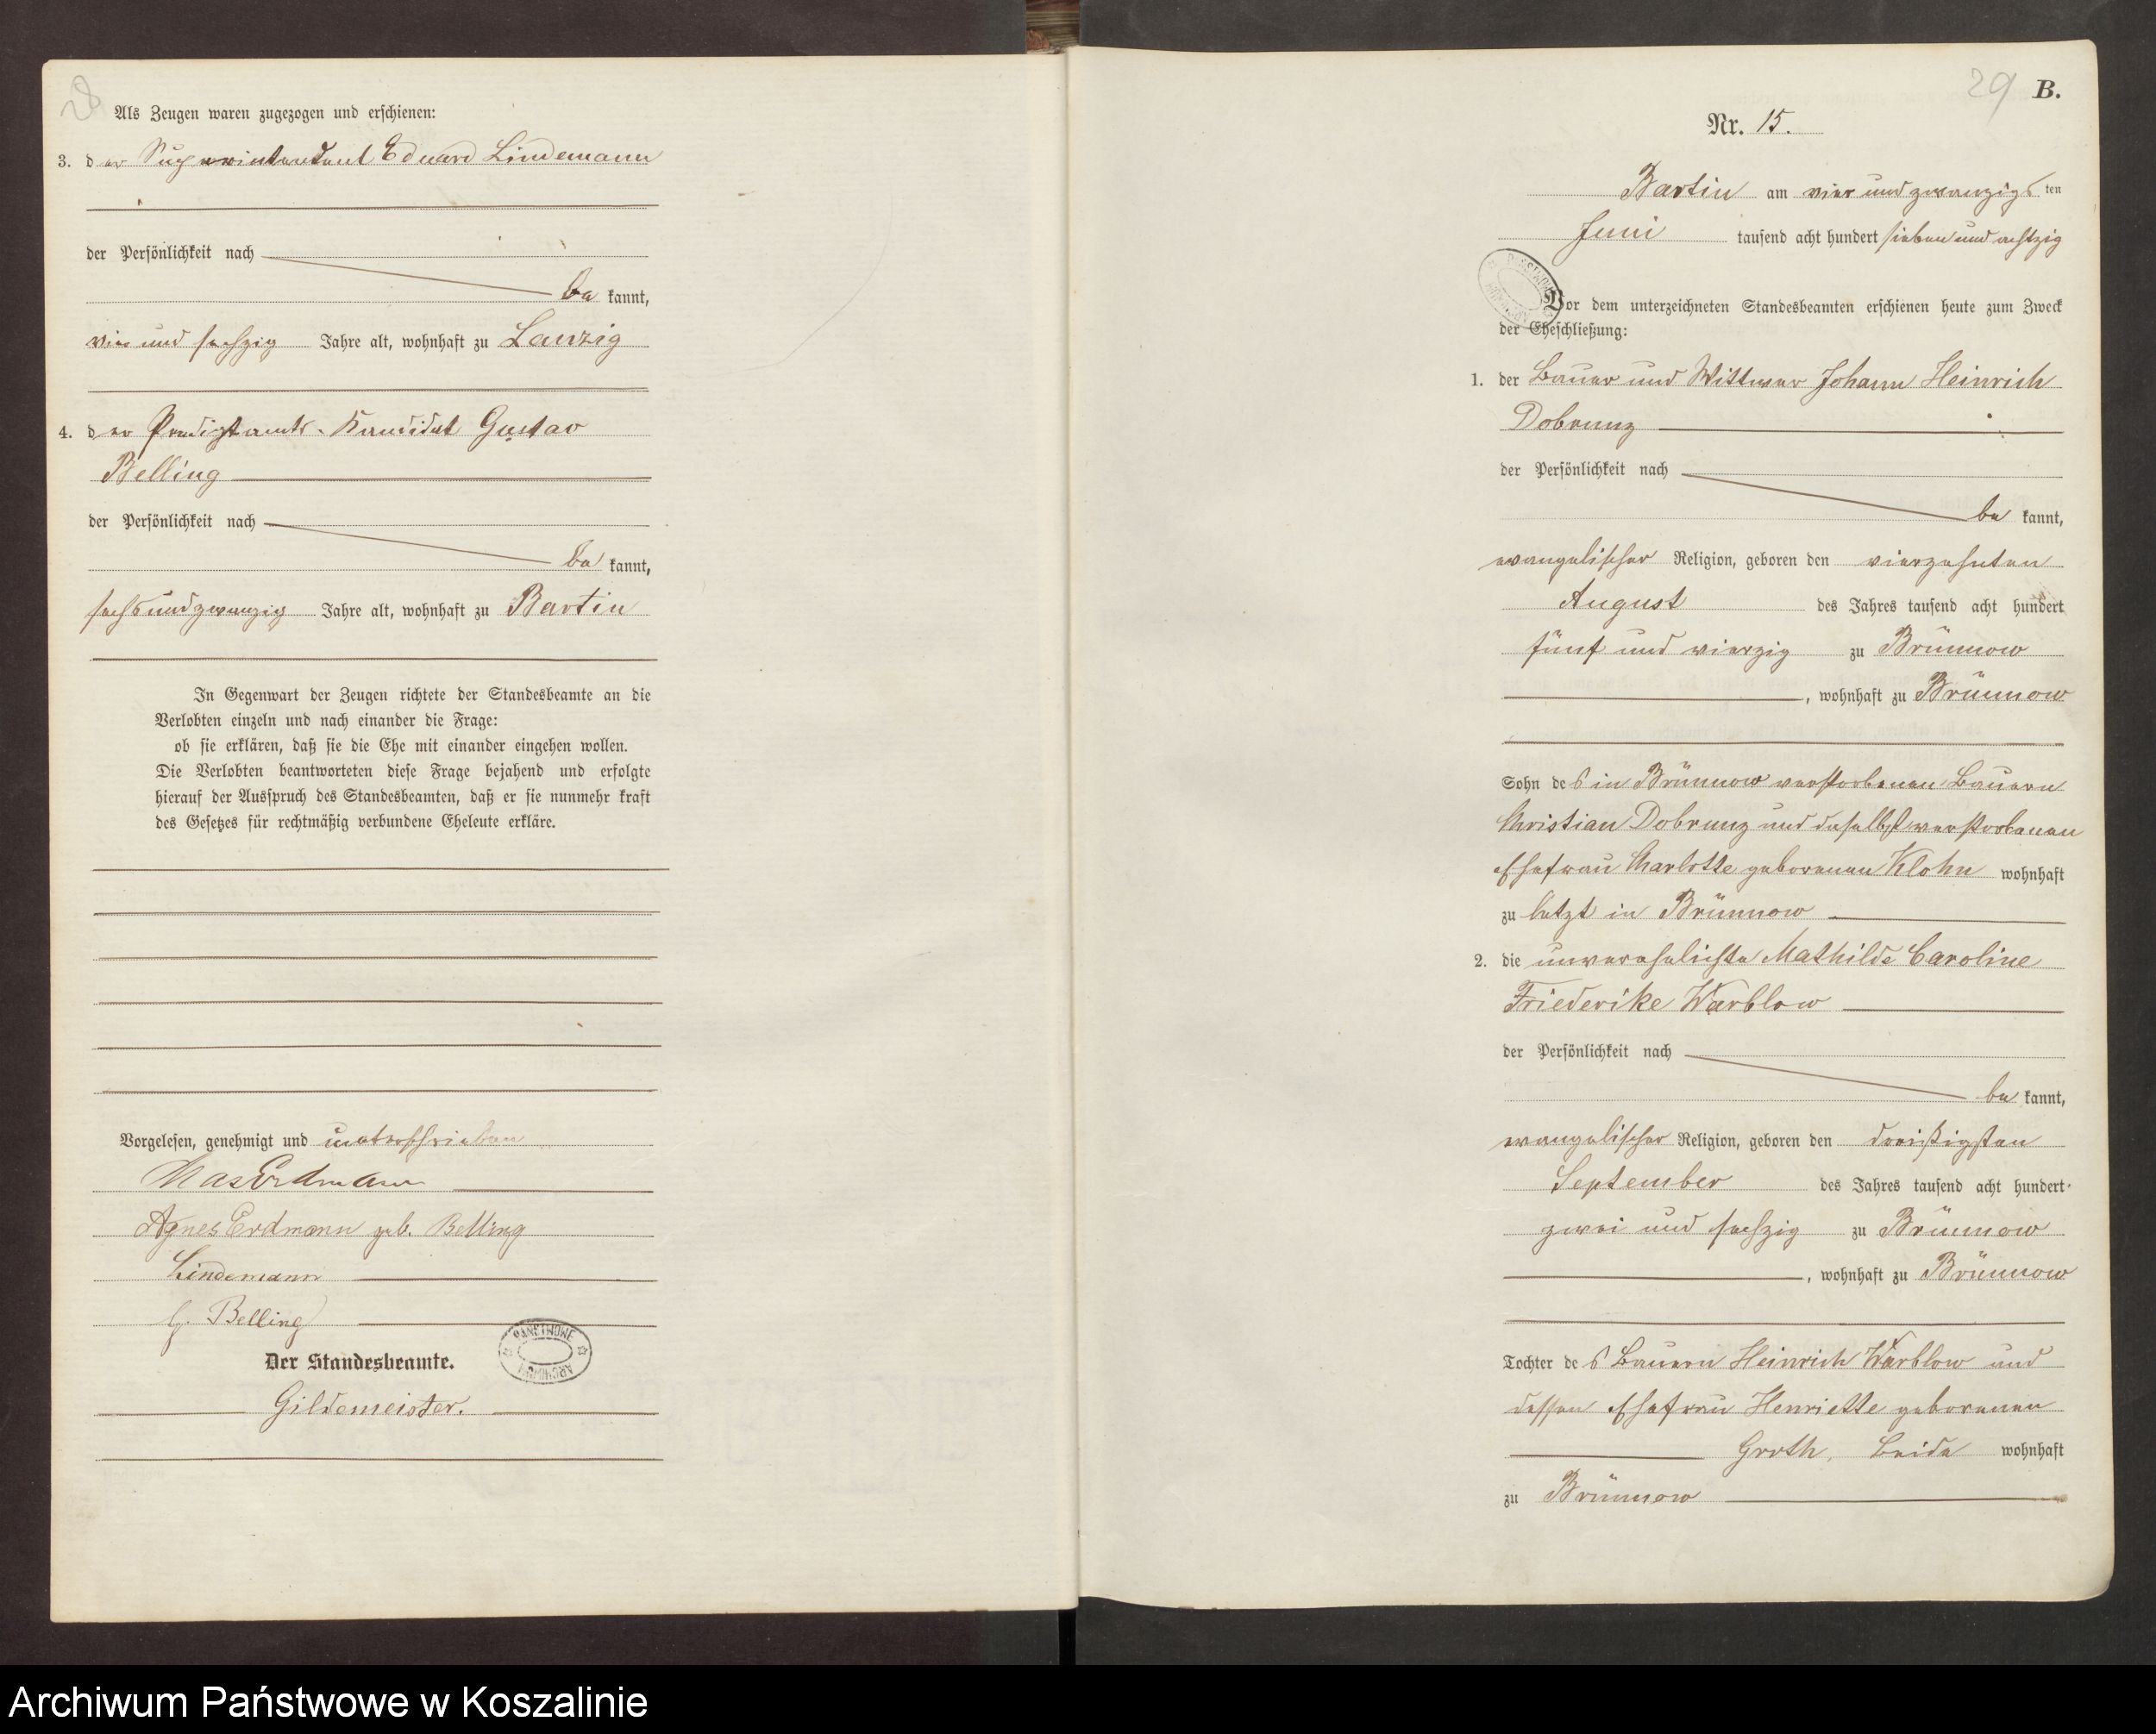 28
Als Zeugen waren zugezogen und erschienen:
3. der Superintendent Eduard Lindemann
der Persönlichkeit nach
bekannt,
vier und sechzig Jahre alt, wohnhaft zu Lanzig
4. der Predigtamts-Kandidat Gustav
Belling
der Persönlichkeit nach
bekannt,
sechsundzwanzig Jahre alt, wohnhaft zu Bartin
In Gegenwart der Zeugen richtete der Standesbeamte an die
Verlobten einzeln und nach einander die Frage:
ob sie erklären, daß sie die Ehe mit einander eingehen wollen.
Die Verlobten beantworteten diese Frage bejahend und erfolgte
hierauf der Ausspruch des Standesbeamten, daß er sie nunmehr kraft
des Gesetzes für rechtmäßig verbundene Eheleute erkläre.
Vorgelesen, genehmigt und unterschrieben
Erdmann
Agnes Erdmann geb. Belling
Lindemann
G. Belling
Der Standesbeamte.
PAŃSTWOWE ARCHIWUM
Gildemeister.
29
B.
Nr. 15.
Bartin am vier und zwanzigsten
Juni tausend acht hundert sieben und achtzig
Vor dem unterzeichneten Standesbeamten erschienen heute zum Zweck
der Eheschließung:
1. der Bauer und Wittwer Johann Heinrich
Dobrunz
der Persönlichkeit nach
bekannt,
evangelischer Religion, geboren den vierzehnten
August des Jahres tausend acht hundert
fünf und vierzig zu Brünnow
, wohnhaft zu Brünnow
Sohn des in Brünnow verstorbenen Bauern
Christian Dobrunz und daselbst verstorbenen
Ehefrau Charlotte geborenen Klohn wohnhaft
zu letzt in Brünnow
2. die unverehelichte Mathilde Caroline
Friederike Warblow
der Persönlichkeit nach
bekannt,
evangelischer Religion, geboren den dreißigsten
September des Jahres tausend acht hundert
zwei und sechzig zu Brünnow
, wohnhaft zu Brünnow
Tochter des Bauern Heinrich Warblow und
dessen Ehefrau Henriette geborenen
Groth, beide wohnhaft
zu Brünnow
Archiwum Państwowe w Koszalinie